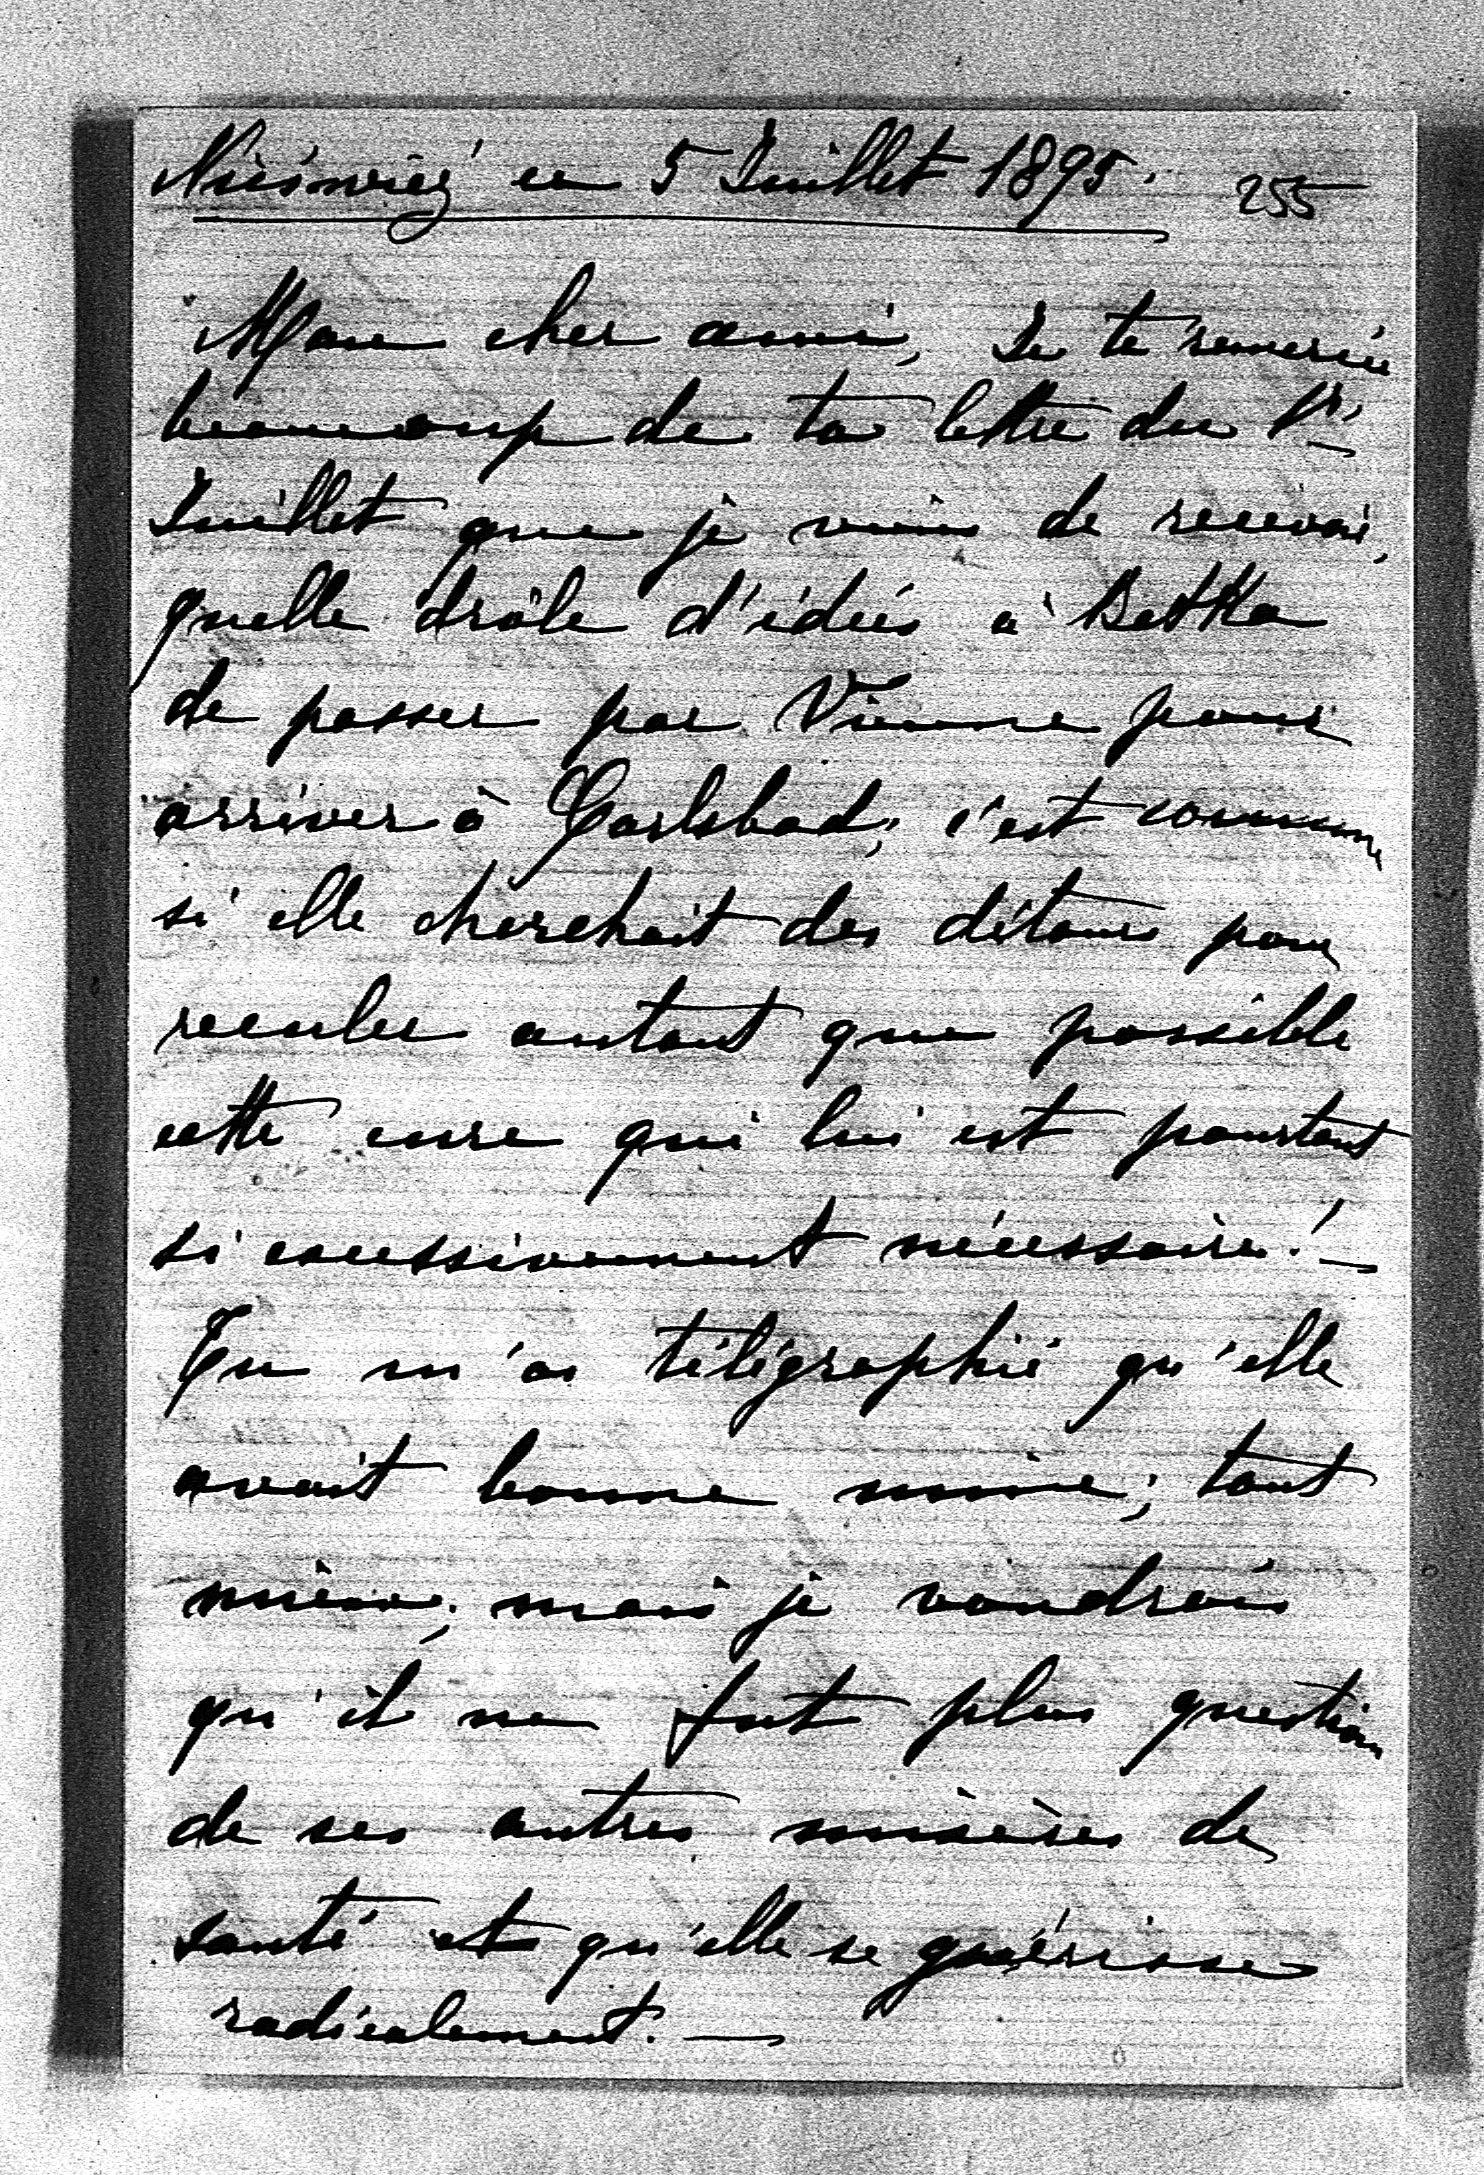 Nieśwież ce 5 Juillet 1895. 255
Mon cher ami, Je te remercie
beaucoup de ta lettre du 1r
Juillet que je viens de recevoir,
quelle drôle d'idée à Betka
de passer par Vienne pour
arriver à Carlsbad; c'est comme
si elle cherchait des détours pour
reculer autant que possible
cette cure qui lui est pourtant
si excessivement nécessaire! —
Tu m'as télégraphié qu'elle
avait bonne mine; tant
mieux; mais je voudrais
qu'il ne fut plus question
de ses autres misères de
santé et qu'elle se guérisse
radicalement. —